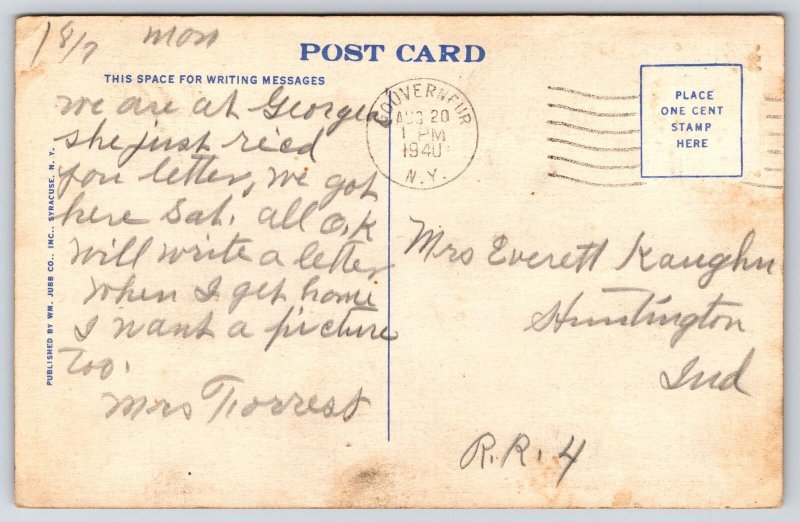 Mon
POST CARD
THIS SPACE FOR WRITING MESSAGES
we are at Georgea
she just rec'd
you letter, we got
here Sat. all O.K
will write a letter
when I get home
I want a picture
too.
Mrs Forrest
PUBLISHED BY WM. JUBB CO., INC., SYRACUSE, N. Y.
GOUVERNEUR
AUG 20
1 PM
1940
N.Y.
PLACE
ONE CENT
STAMP
HERE
Mrs Everett Kaughn
Huntington
Ind
R.R. 4